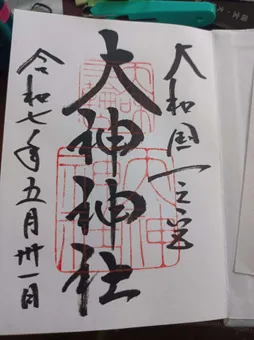 大和国一之宮
大神神社
令和七年五月卅一日